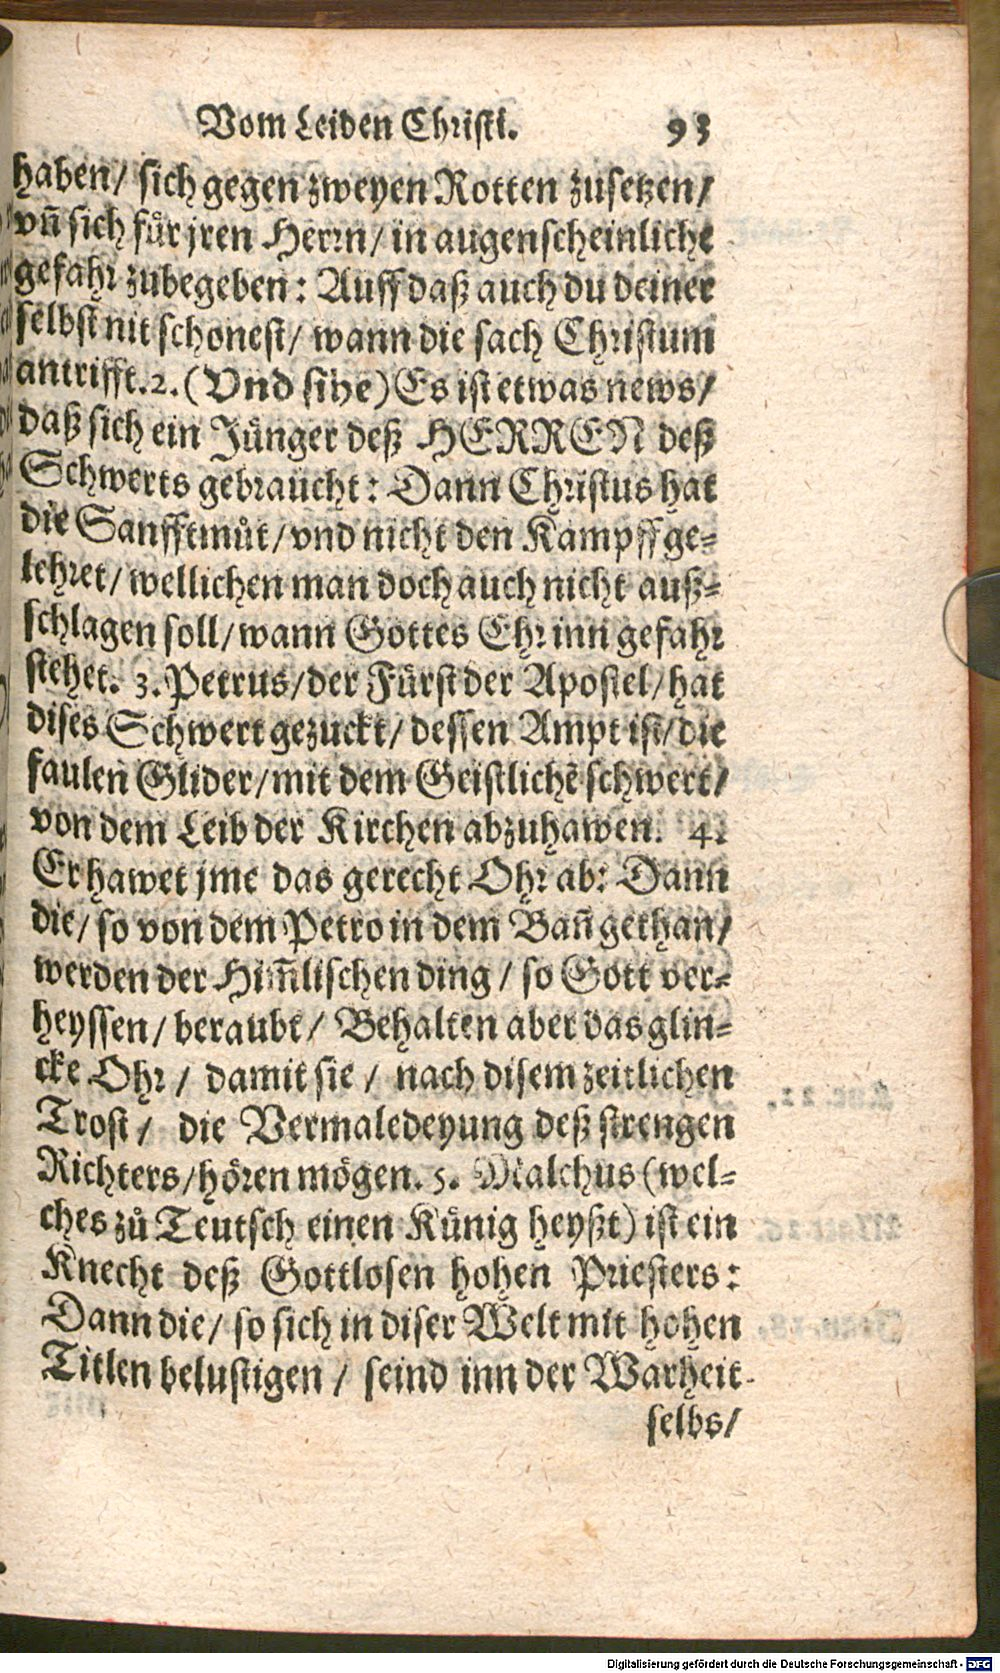 Vom Leiden Christi. 93
haben/ sich gegen zweyen Rotten zusetzen/
vñ sich für jren Herrn/ in augenscheinliche
gefahr zubegeben: Auff daß auch du deiner
selbst nit schonest/ wann die sach Christum
antrifft. 2. (Vnd sihe) Es ist etwas news/
daß sich ein Jünger deß HERREN deß
Schwerts gebraucht: Dann Christus hat
die Sanfftmůt/ vnd nicht den Kampff ge-
lehret/ wellichen man doch auch nicht auß-
schlagen soll/ wann Gottes Ehr inn gefahr
stehet. 3. Petrus/ der Fürst der Apostel/ hat
dises Schwert gezuckt/ dessen Ampt ist/ die
faulen Glider/ mit dem Geistlichẽ schwert/
von dem Leib der Kirchen abzuhawen. 4.
Er hawet jme das gerecht Ohr ab: Dann
die/ so von dem Petro in dem Bañ gethan/
werden der Him̃lischen ding/ so Gott ver-
heyssen/ beraubt/ Behalten aber das glin-
cke Ohr/ damit sie/ nach disem zeitlichen
Trost/ die Vermaledeyung deß strengen
Richters/ hören mögen. 5. Malchus (wel-
ches zů Teutsch einen Künig heyßt) ist ein
Knecht deß Gottlosen hohen Priesters:
Dann die/ so sich in diser Welt mit hohen
Titlen belustigen/ seind inn der Warheit
selbs/
Digitalisierung gefördert durch die Deutsche Forschungsgemeinschaft - DFG